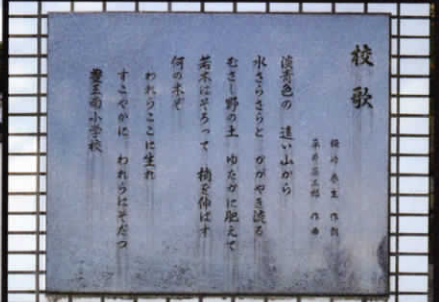 校歌
作詞
作曲
淡青色の 遠い山から
水さらさらと かがやき流る
むさし野の土 ゆたかに肥えて
若木はそろって 梢を伸ばす
何の木ぞ
われらここに生れ
すこやかに われらはそだつ
豊玉南小学校